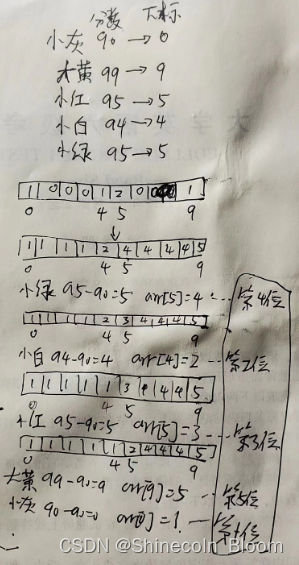 分数 下标
小灰 90→0
大黄 99→9
小红 95→5
小白 94→4
小绿 95→5
1 0 0 0 1 2 0 0 1
0 4 5 9
1 1 1 1 2 4 4 4 4 5
0 4 5 9
小绿 95-90=5 arr[5]=4 第4位
1 1 1 1 2 3 4 4 4 5
0 4 5 9
小白 94-90=4 arr[4]=2 第2位
1 1 1 1 1 3 4 4 5
0 4 5 9
小红 95-90=5 arr[5]=3 第3位
1 1 1 1 1 2 4 4 4 5
0 4 5 9
大黄 99-90=9 arr[9]=5 第5位
小灰 90-90=0 arr[0]=1 第1位
CSDN @Shinecoln_Bloom